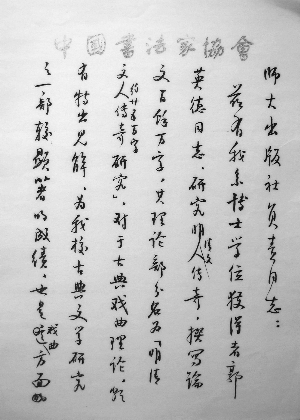 中國書法家協會
师大出版社负责同志：
兹有我系博士学位获得者郭
英德同志，研究明人传奇，撰写论
清文
文百余万字，其理论部分名为「明清
约廿万字
文人传奇研究」，对于古典戏曲理论，颇
有特出见解，为我校古典文学研究
之一部较显著的成绩，也是这方面的
戏曲